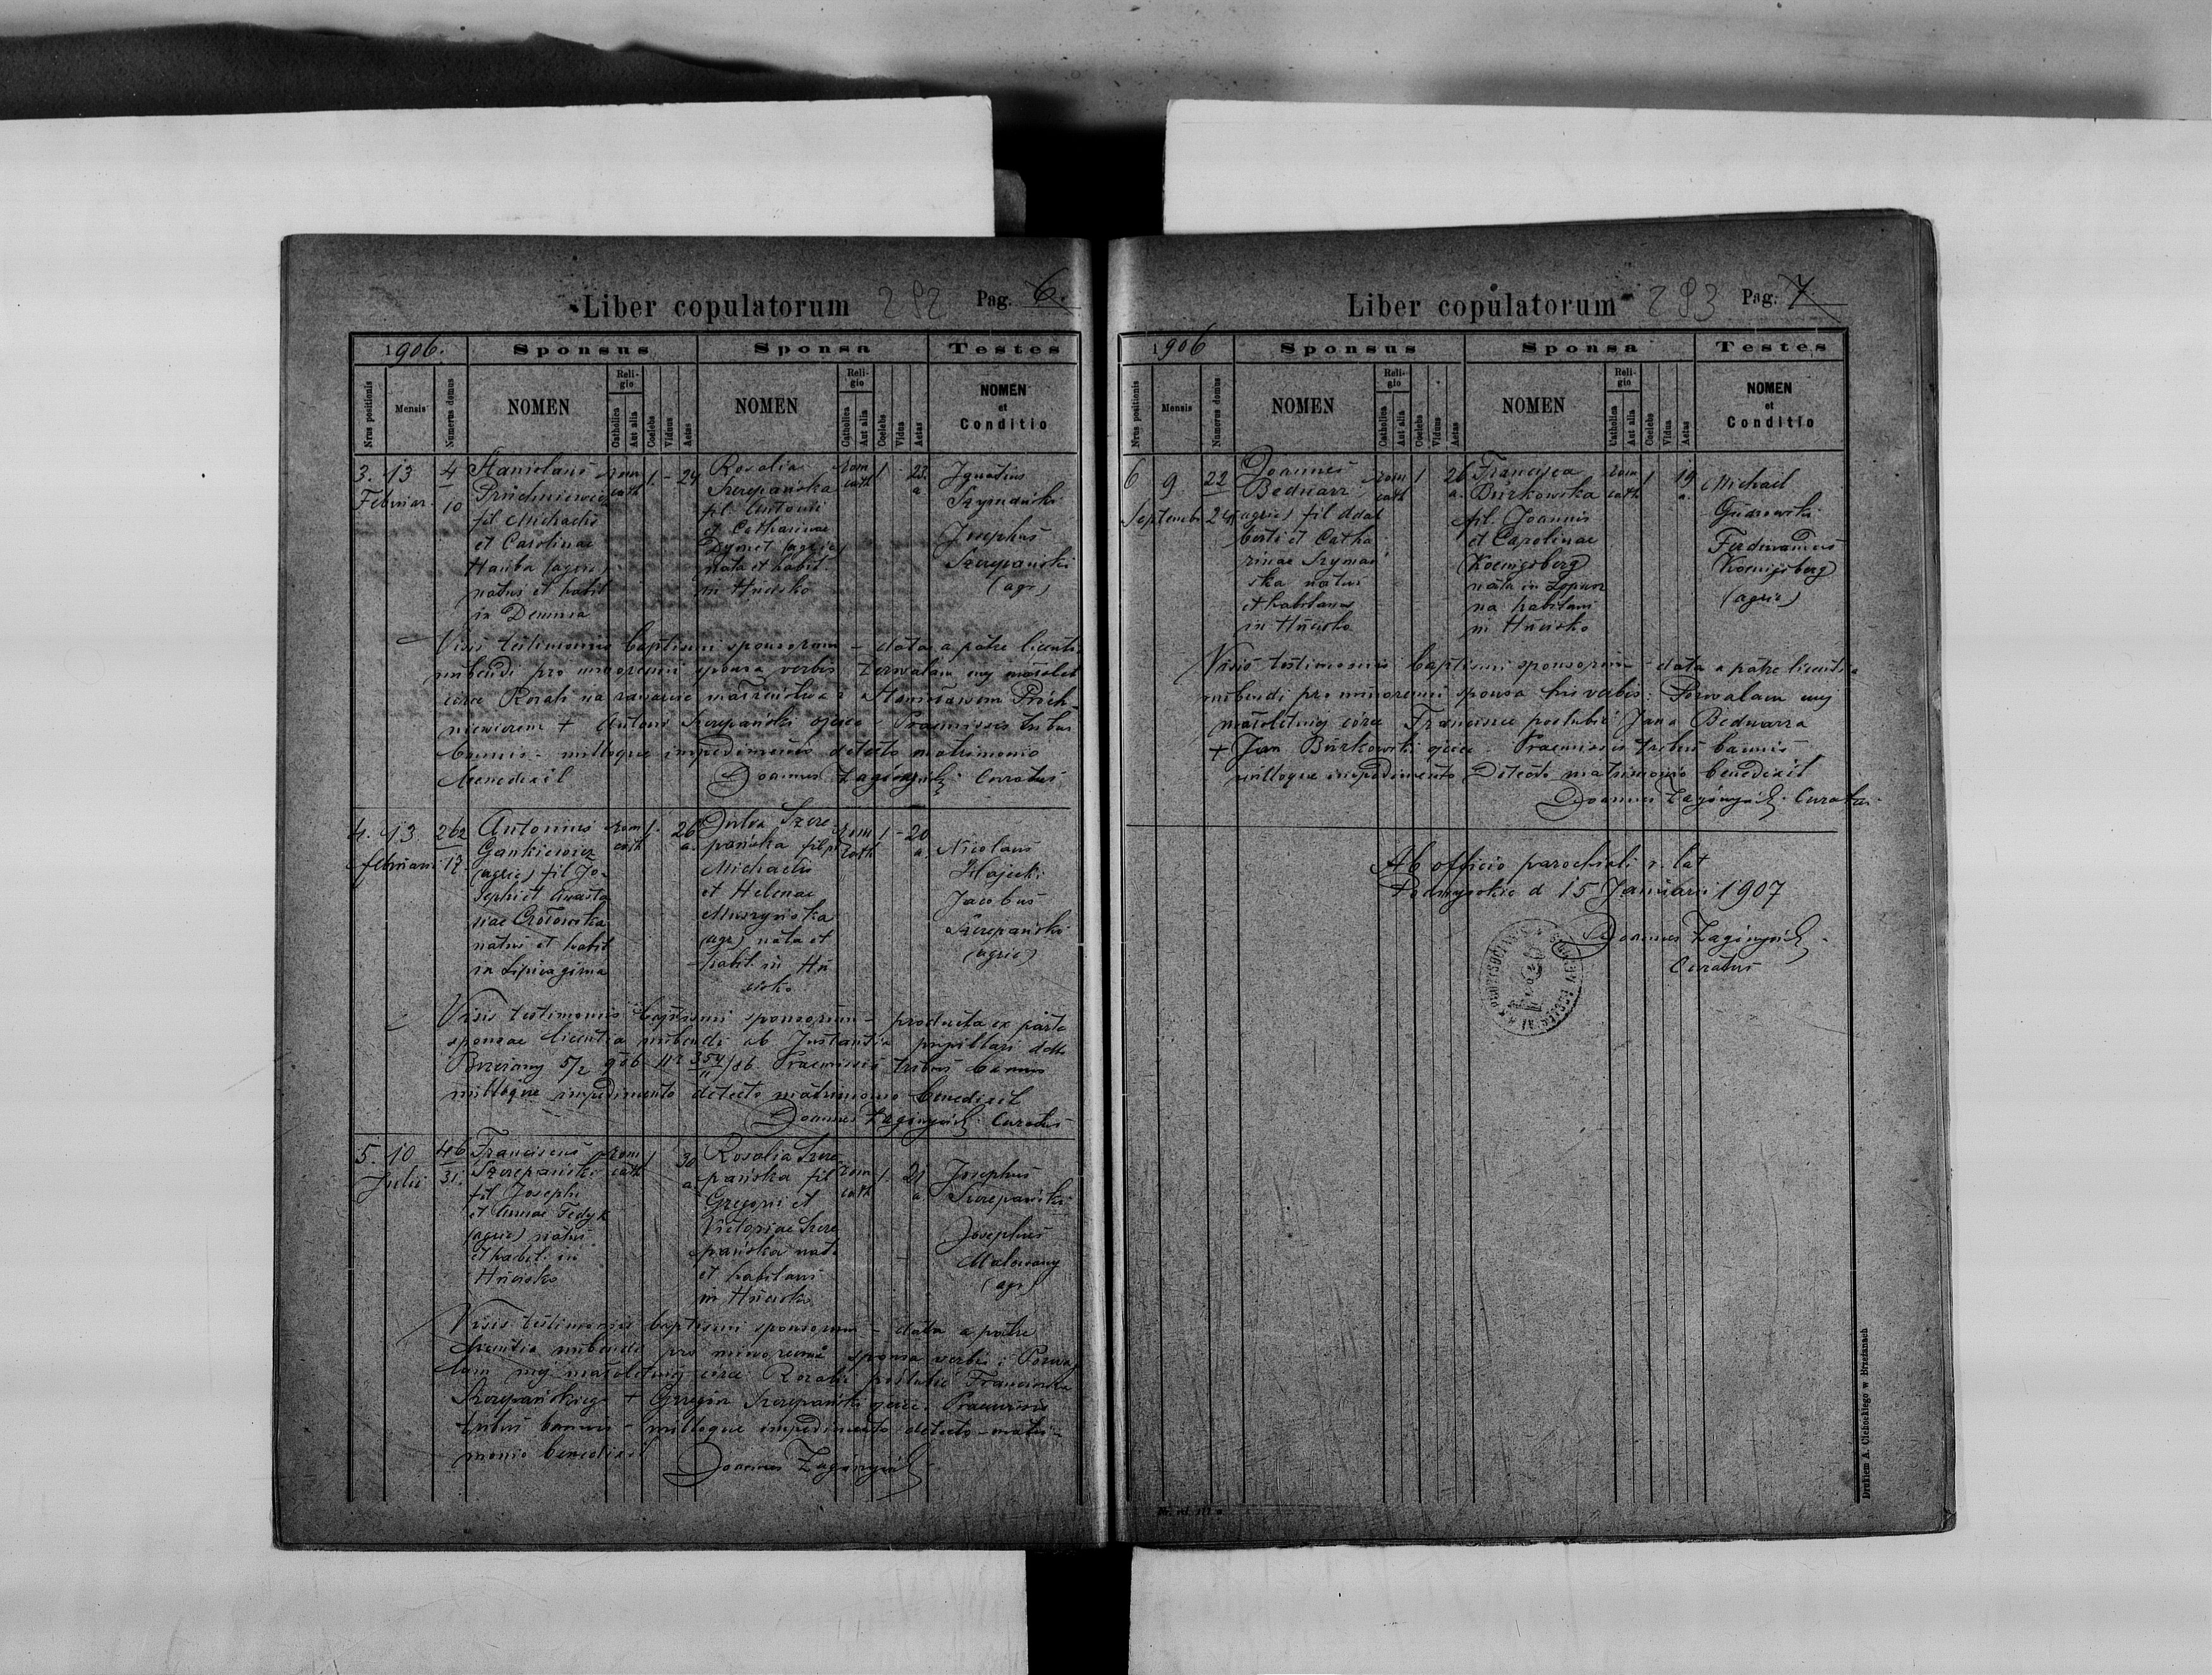 Liber copulatorum 292 Pag. 6.
1906. Sponsus Sponsa Testes
Nrus positionis Mensis Numerus domus NOMEN Religio Catholica Aut alia Coelebs Viduus Aetas NOMEN Religio Catholica Aut alia Coelebs Vidua Aetas NOMEN et Conditio
3. 13 Februar. 4 10
Stanislaus
fil Michaelis
et Carolinae
Hanba (agric)
natus et habit
in Demnia
rom cath 1. - 24
Rosalia
Szczepańska
fil. Antonii
et Catharinae
Dymet (agric)
nata et habit.
in Hucisko
rom cath 1 - 23 a
Ignatius
Josephus
Szczepański
(agr)
Visis testimoniis baptismi sponsorum - data a patre licentia
nubendi pro minorenni sponsa verbis Zezwalam mej małolet
córce Rozalii na zawarcie małżeństwa z Stanisławem
+ Antoni Szczepański ojciec - Praemissis tribus
bannis - nulloque impedimento detecto matrimonio
benedixit Joannes Curatus
4. 13 Februari 262 17.
Antonius
Gankiewicz
(agric) fil Jo-
sephi et Anasta
siae
natus et habit
in Lipicagórna
rom cath 1. 26 a.
Julia Szcze
pańska filia
Michaelis
et Helenae
Muszyńska
(agr) nata et
habit. in Hu
cisko
rom cath 1 - 20 a.
Nicolaus
Jacobus
Szczepański
(agric)
Visis testimoniis baptismi sponsorum - producta ex parte
sponsae licentia nubendi ab Instantia pupillari ddto
Brzeżany 5/2 906 Nr 354/06 Praemissis tribus bannis
nulloque impedimento detecto matrimonio benedixit
Joannes Curatus
5. 10 Julii 46 31.
Franciscus
Szczepański
fil Josephi
et Annae Fedyk
(agric) natus
et habit. in
Hucisko
rom cath 1 30 a
Rosalia Szcze
pańska fil
Gregorii et
Victoriae Szcze
pańska nata
et habitans
in Hucisko
rom cath 1. 21 a
Josephus
Szczepański
Josephus
Malowany
(agr)
Visis testimoniis baptismi sponsorum - data a patre
licentia nubendi pro minorenni sponsa verbis: Pozwa
lam mej małoletniej córce Rozalii poślubić Franciszka
Szczepańskiego + Grzegórz Szczepański ojciec. Praemissis
tribus bannis - nulloque impedimento detecto - matri-
monio benedixit Joannes
Liber copulatorum 293 Pag. 7
1906 Sponsus Sponsa Testes
Nrus positionis Mensis Numerus domus NOMEN Religio Catholica Aut alia Coelebs Viduus Aetas NOMEN Religio Catholica Aut alia Coelebs Vidua Aetas NOMEN et Conditio
6 9 Septemb 22 24
Joannes
Bednarz
(agric) fil Adal
berti et Catha
rinae Szymań
ska natus
et habitans
in Hucisko
rom cath 1 26 a.
Francisca
Burkowska
fil. Joannis
et Carolinae
Koenigsberg
nata in
habitans
in Hucisko
rom cath 1 19 a.
Michael
Ferdinandus
Koenigsberg
(agric)
Visis testimoniis baptismi sponsorum - data a patre licentia
nubendi pro minorenni sponsa his verbis: Pozwalam mej
małoletniej córce Francisce poślubić Jana Bednarza
+ Jan Burkowski ojciec. Praemissis tribus bannis
nulloque impedimento detecto matrimonio benedixit
Joannes Curatus
Ab officio parochiali r. lat
Podwysokie d 15 Januarii 1907
Joannes
Curatus
Drukiem A. Cichockiego w Brzeżanach